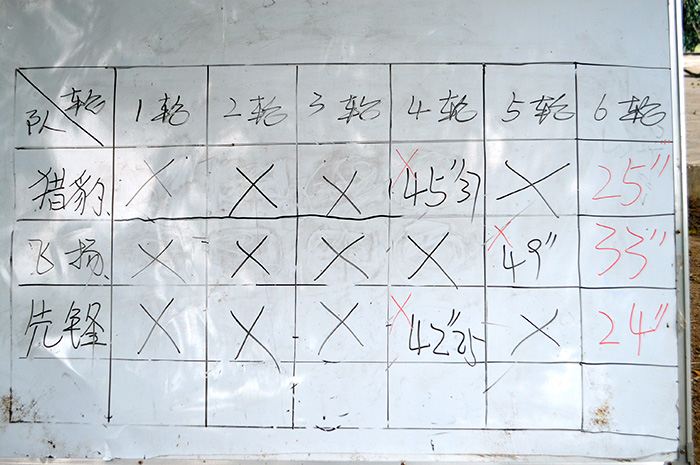 队 轮 1轮 2轮 3轮 4轮 5轮 6轮
猎豹 X X X X 45"37 X 25"
飞扬 X X X X X 49" 33"
先锋 X X X X 42" X 24"